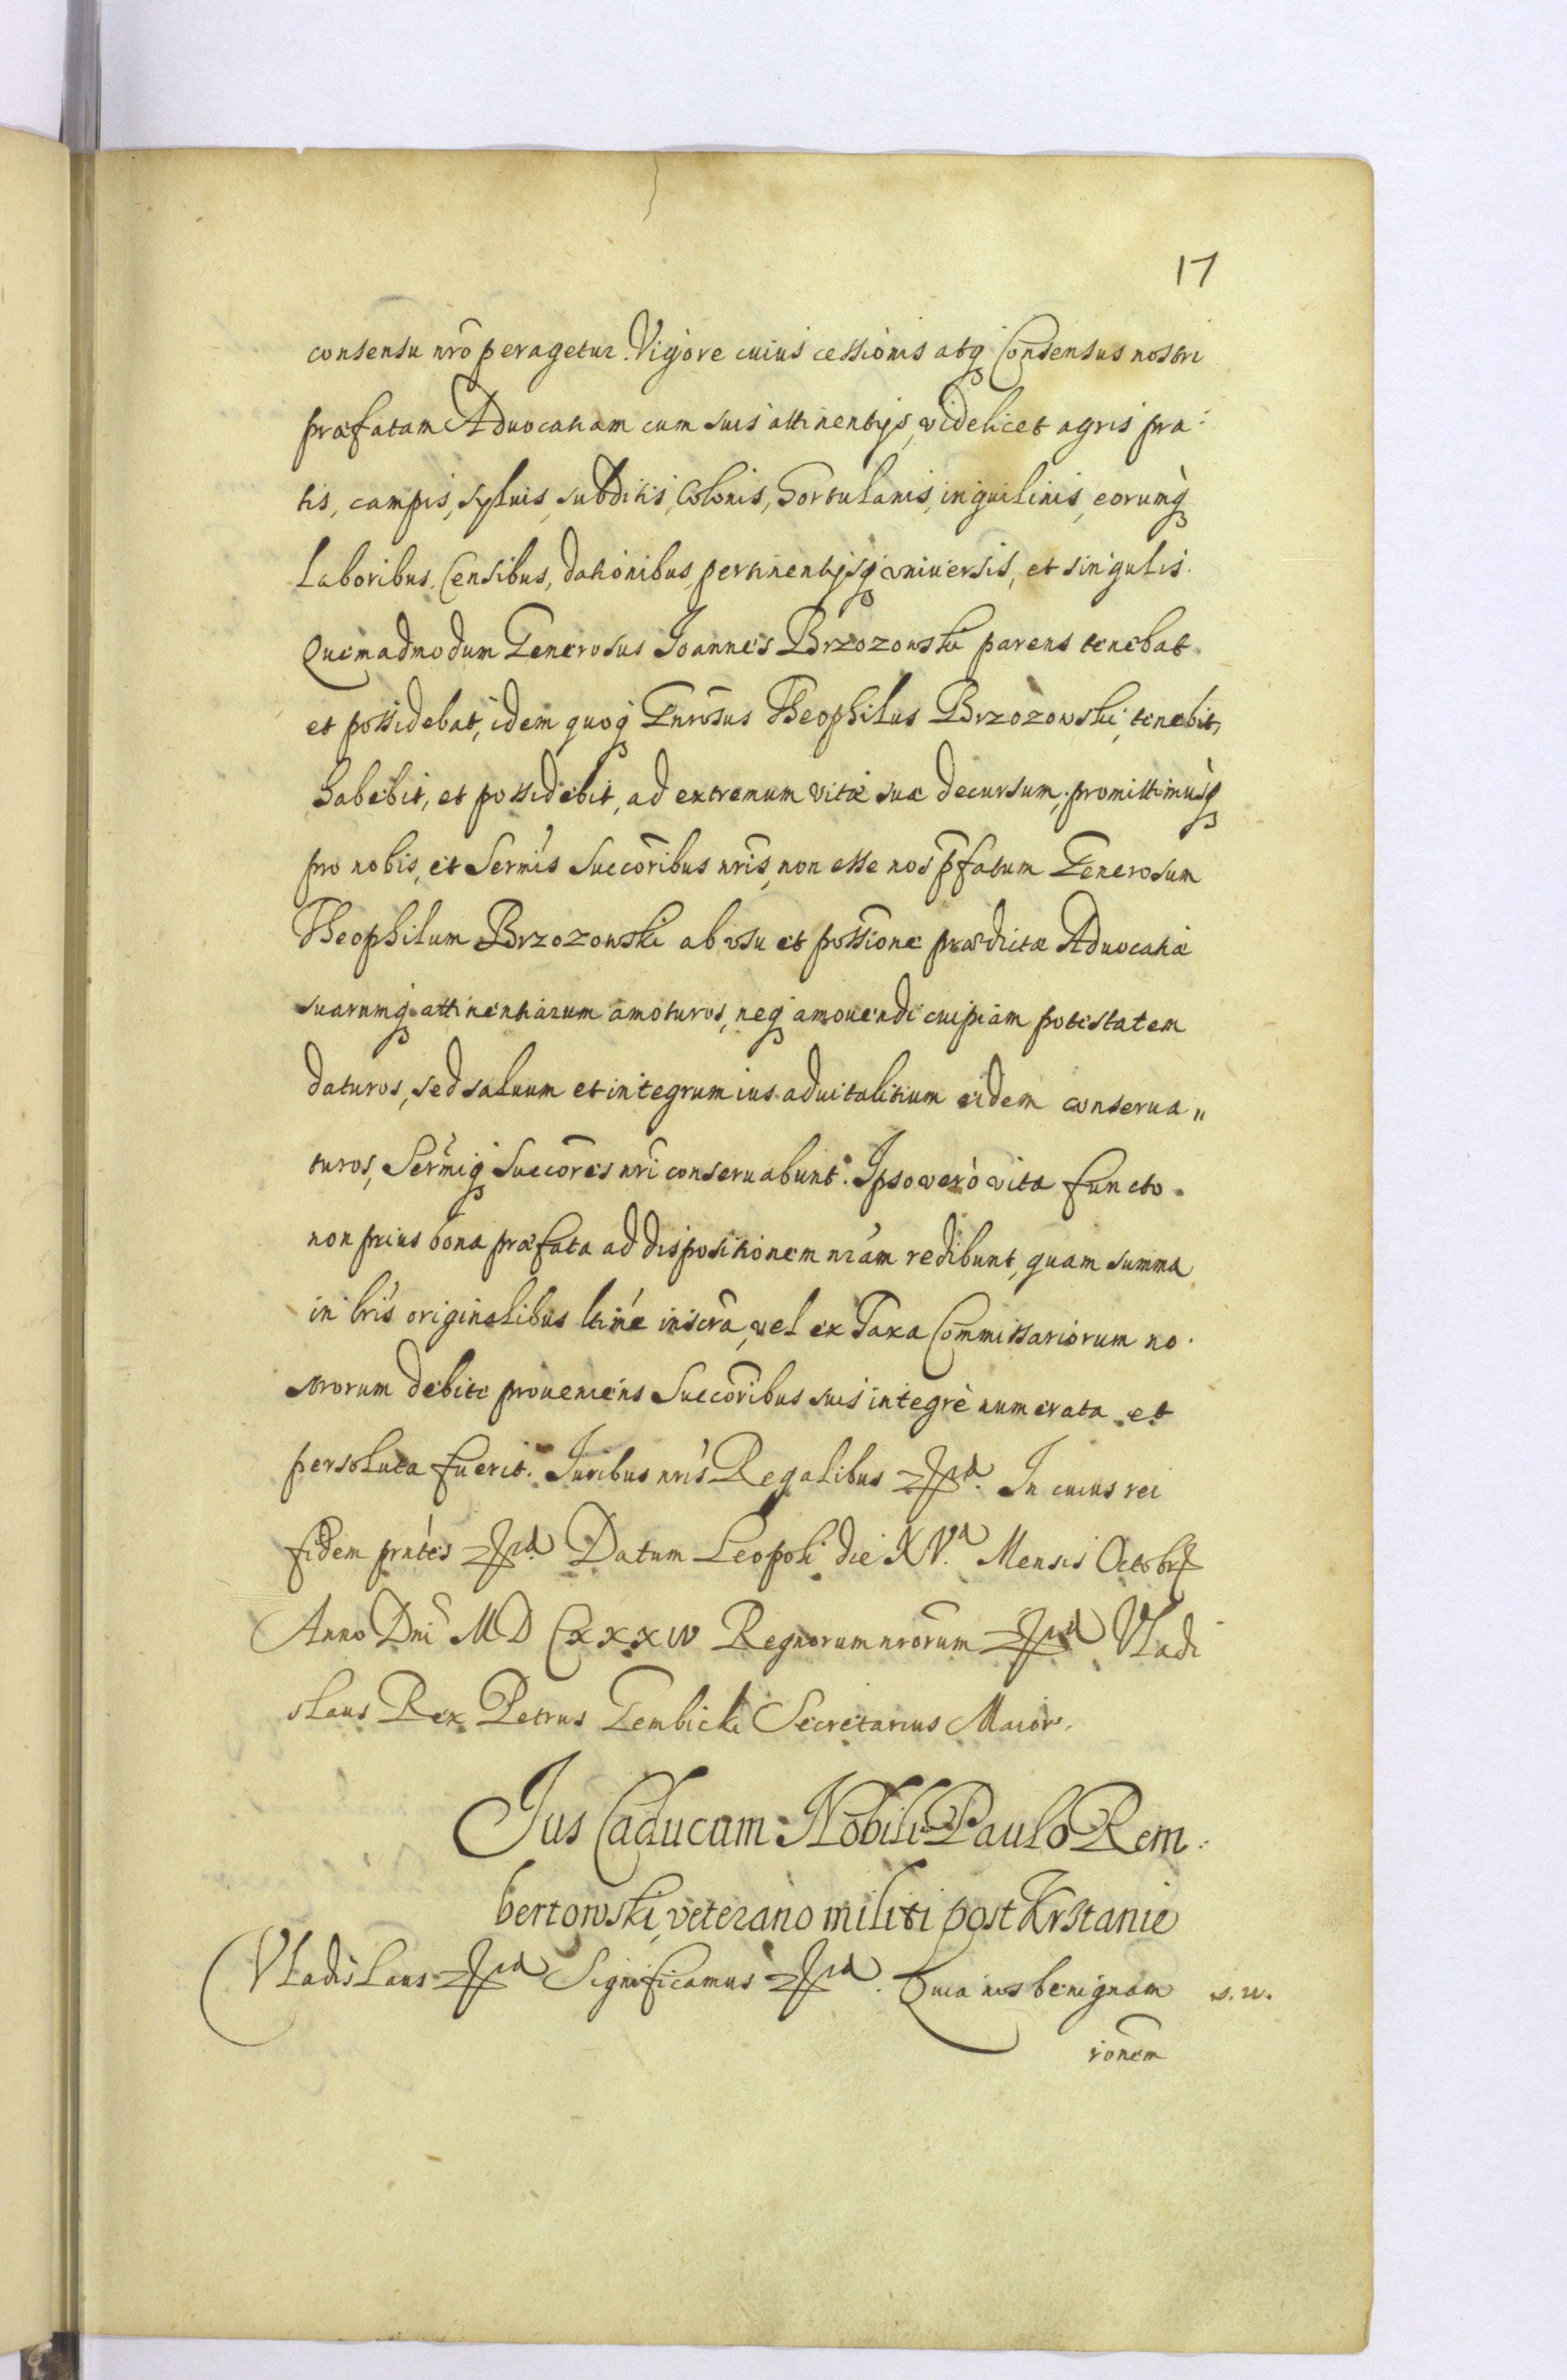 17
consensu nrõ peragetur. Vigore cuius cessionis atq Consensus nostri
præfatam Aduocatiam cum suis attinentijs, videlicet agris pra-
tis, campis, syluis, subditis, Colonis, Hortulanis, inquilinis, eorumq
Laboribus, Censibus, dationibus, pertinentijsq vniuersis, et singulis.
Quemadmodum Generosus Joannes Brzozowski parens tenebat
et possidebat, idem quoq Gnrosus Theophilus Brzozowski, tenebit,
habebit, et possidebit, ad extremum vitæ suæ decursum, promittimusq
pro nobis, et Sermis Succoribus nris, non esse nos pfatum Generosum
Theophilum Brzozowski ab vsu et possione prædictæ Aduocatiæ
suarumq attinentiarum amoturos, neq amouendi cuipiam potestatem
daturos, sed saluum et integrum ius aduitalitium eidem conserua"
turos, Sermiq Succores nri conseruabunt. Ipso verò vita functo.
non prius bona præfata ad dispositionem nram redibunt, quam summa
in lris originalibus ltime inscra, vel ex Taxa Commissariorum no.
strorum debite proueniens Succoribus suis integrè numerata et
persoluta fuerit. Juribus nris Regalibus In cuius rei
fidem prntes Datum Leopoli die XV.a Mensis Octobr
Anno Dni MD CXXXIV Regnorum nrorum Vladi
slaus Rex Petrus Gembicki Secretarius Maior.
Jus Caducum Nobili Paulo Rem.
bertowski, veterano militi post Krstanie
Vladislaus Significamus Quia nos benignam s. u.
ronem